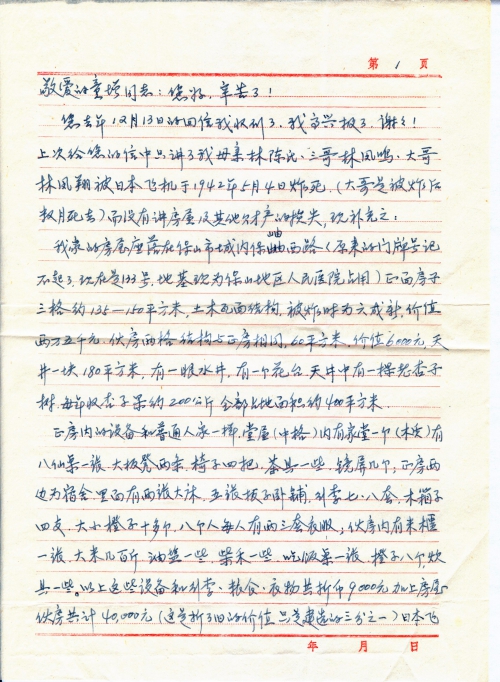 第 1 页
敬爱的童增同志：您好，辛苦了！
您去年12月13日的回信我收到了，我高兴极了，谢谢！
上次给您的信中只讲了我母亲林陈氏、三哥林凤鸣、大哥
林凤翔被日本飞机于1942年5月4日炸死，(大哥是被炸后
数月死去)而没有讲房屋及其他财产的损失，现补充之：
我家的房屋座落在保山市城内保岫西路(原来的门牌号记
不起了，现在是133号，地基现为保山地区人民医院占用)正面房子
三格约135—150平方米，土木瓦面结构，被炸时为六成新，价值
两万五千元，伙房两格结构与正房相同，60平方米，价值6000元，天
井一块180平方米，有一眼水井，有一个花台，天井中有一棵老杏子
树，每年收杏子果约200公斤全部占地面积约400平方米。
正房内的设备和普通人家一样，堂屋(中格)内有家堂一个(木头)有
八仙桌一张，大板凳两条，椅子四把，茶具一些，镜屏几个，正房两
边为宿舍，里面有两张大床，五张板子卧铺，行李七、八套，木箱子
四支，大小橙子十多个，八个人每人有两三套衣服；伙房内有米柜
一张，大米几百斤，油盐一些，柴禾一些，吃饭桌一张，橙子八个，炊
具一些。以上这些设备和行李、粮食、衣物共折币9000元加上房屋
伙房共计40,000元(这是折了旧的价值只是建造的三分之一)日本飞
年 月 日